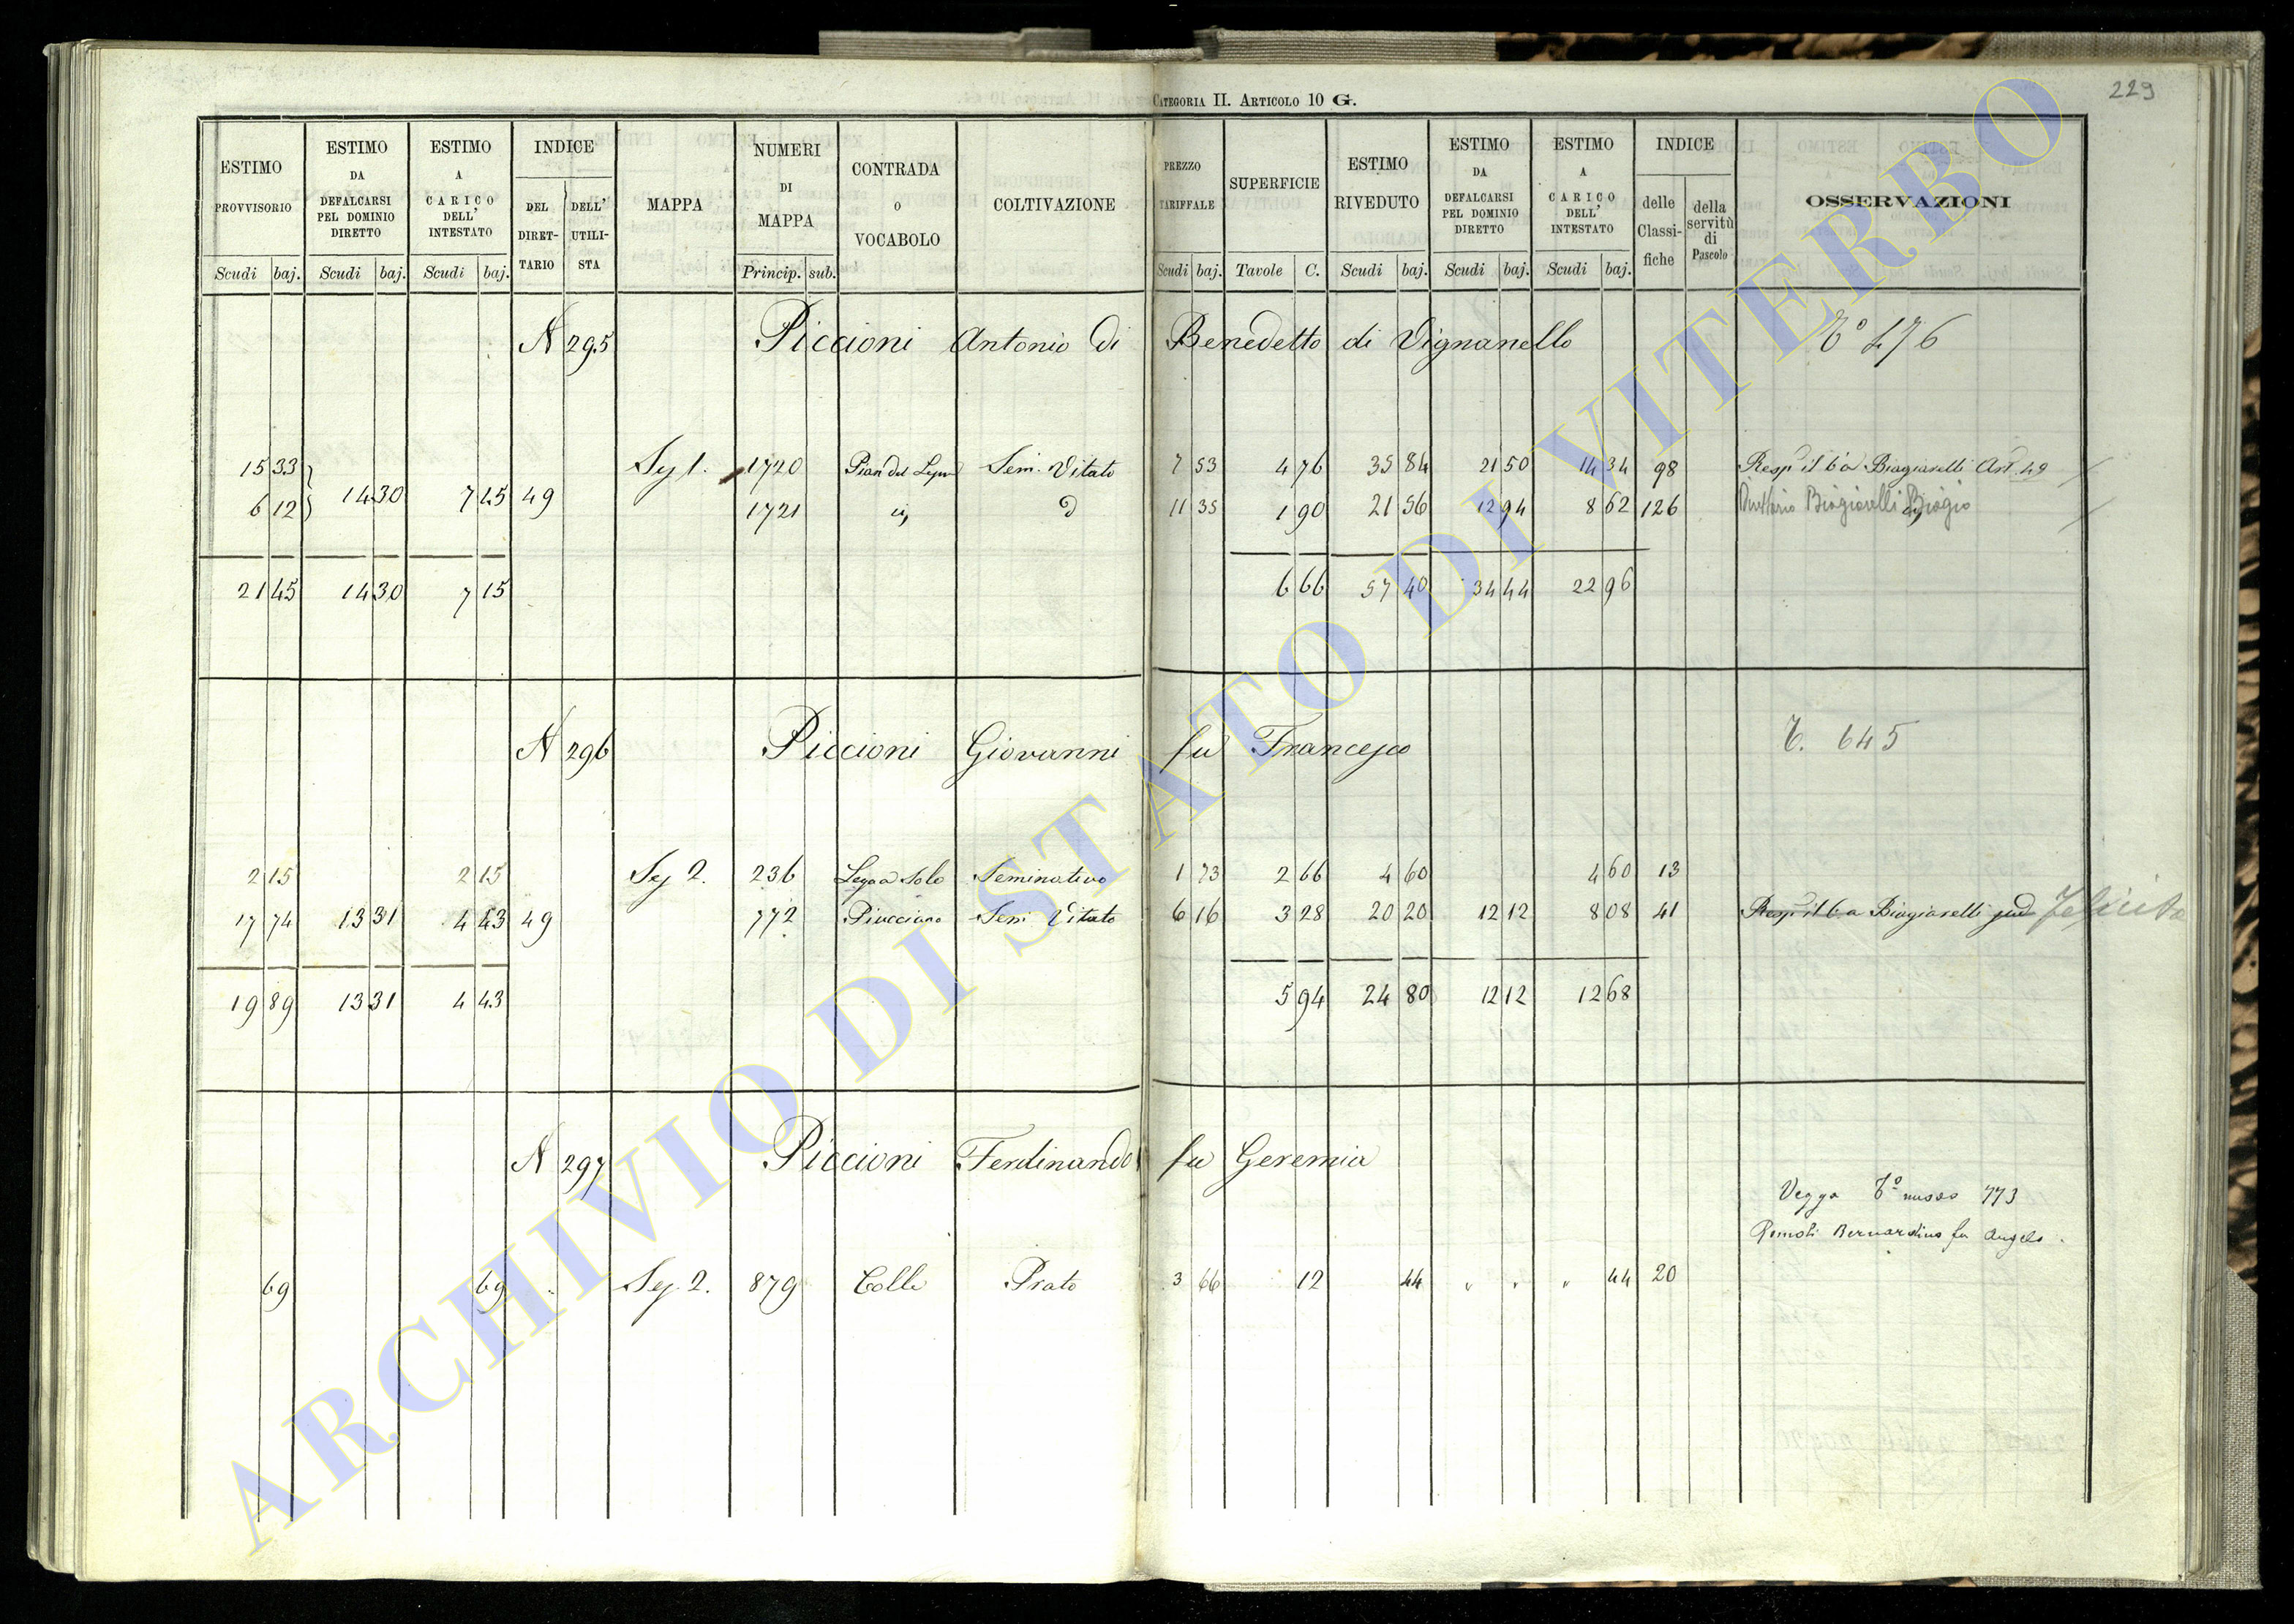 229
CATEGORIA II. ARTICOLO 10 G.
ESTIMO PROVVISORIO Scudi baj.
ESTIMO DA DEFALCARSI PEL DOMINIO DIRETTO Scudi baj.
ESTIMO A CARICO DELL' INTESTATO Scudi baj.
INDICE DEL DIRET-TARIO DELL' UTILI-STA
MAPPA
NUMERI DI MAPPA Princip. sub.
CONTRADA O VOCABOLO
COLTIVAZIONE
PREZZO TARIFFALE Scudi baj.
SUPERFICIE Tavole C.
ESTIMO RIVEDUTO Scudi baj.
ESTIMO DA DEFALCARSI PEL DOMINIO DIRETTO Scudi baj.
ESTIMO A CARICO DELL' INTESTATO Scudi baj.
INDICE delle Classi-fiche della servitù di Pascolo
OSSERVAZIONI
N 295 Piccioni Antonio di Benedetto di Vignanello
15 33 Sez 1. 1720 Pian del Sem. Vitato 7 53 4 76 35 84 21 50 14 34 98 Biagiarelli Art. 49
6 12 14 30 7 15 49 1721 11 35 1 90 21 56 12 94 8 62 126 Direttario Biagiarelli Biagio
21 45 14 30 7 15 6 66 57 40 34 44 22 96
N 296 Piccioni Giovanni fu Francesco T. 645
2 15 2 15 Sez 2. 236 Seminativo 1 73 2 66 4 60 4 60 13
17 74 13 31 4 43 49 772 Sem. Vitato 6 16 3 28 20 20 12 12 8 08 41 Biagiarelli Felicita
19 89 13 31 4 43 5 94 24 80 12 12 12 68
N 297 Piccioni Ferdinando fu Geremia
Vegga T.º nuovo 773
Bernardino fu Angelo.
69 69 Sez. 2. 879 Colle Prato 3 66 12 44 " " " 44 20
ARCHIVIO DI STATO DI VITERBO